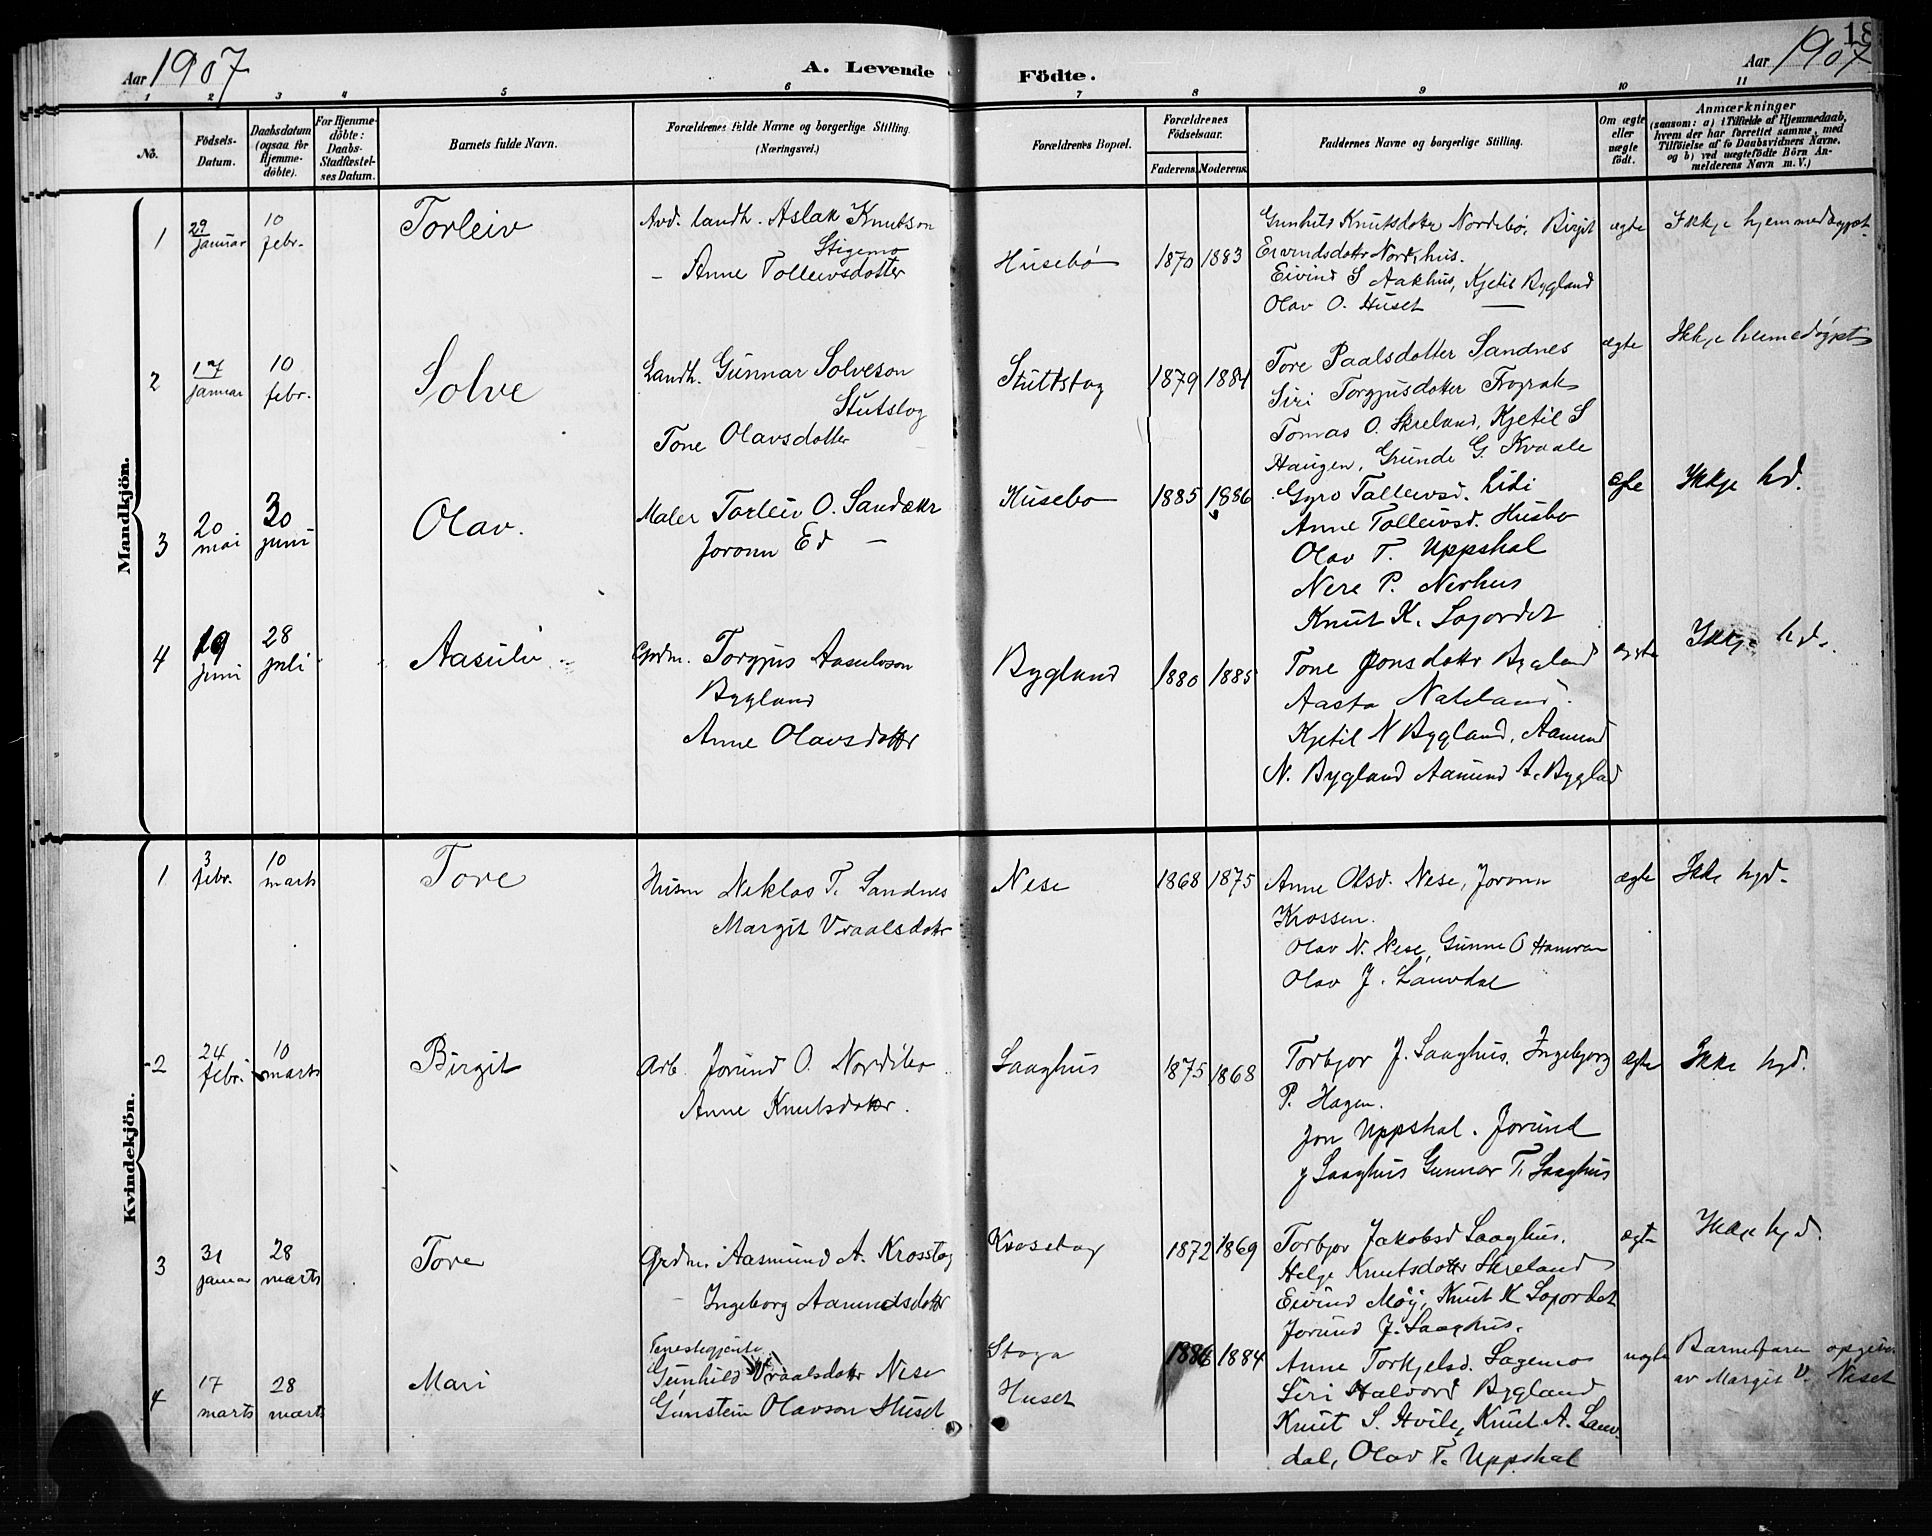 18
Aar 1907
A. Levende Födte.
Aar 1907
1 2 3 4 5 6 7 8 9 10 11
No.
Födsels-
Datum.
Daabsdatum
(ogsaa for
Hjemme-
döbte).
For Hjemme-
döbte:
Daabs-
Stadfæstel-
ses Datum.
Barnets fulde Navn.
Forældrenes fulde Navne og borgerlige Stilling.
(Næringsvei.)
Forældrenes Bopæl.
Forældrenes
Födselsaar.
Faderens. Moderens.
Faddernes Navne og borgerlige Stilling.
Om ægte
eller
uægte
födt.
Anmærkninger
(saasom: a) i Tilfælde af Hjemmedaab,
hvem der har forrettet samme, med
Tilföielse af to Daabsvidners Navne,
og b) ved uægtefödte Börn An-
melderens Navn m. V.)
Mandkjön.
1
29
januar
10
febr.
Torleiv
Avd. landh. Aslak Knutson
Stigemo
– Anne Tolleivsdotter
Husebö
1870 1883
Gunhild Knutsdotr Nordebö, Birgit
Eivindsdottr Nordhus.
Eivind S Aakhus, Kjetil Bygland
Olav O. Huset
ægte
Ikkje hjemmedöypt
2
17
januar
10
febr.
Solve
Landh. Gunnar Solveson
Stutslog
Tone Olavsdotter
Stuttslog
1879 1884
Tore Paalsdotter Sandnes
Siri Torgjusdotter Frøyrak
Tomas O. Skreland, Kjetil S
Haugen, Grunde G. Kvaale
ægte
Ikkje heimedøypt
3
20
mai
30
juni
Olav.
Maler Torleiv O. Sandækr
Joronn Ed –
Husebo
1885 1886
Gyro Talleivsd. Lidi
Anne Tolleivsd. Husbo
Olav T. Uppshal
Nere P. Nerhus
Knut K. Lofordet
ægte
Ikkje hd.
4
19
juni
28
juli
Aasulv
Grdm. Torgjus Aasulvson
Bygland
Anne Olavsdottr
Bygland
1880 1885
Tone Jonsdottr Bygland
Aasta Nateland
Kjetil N Bygland, Aamund
N. Bygland Aamund A. Bygland
ægte
Ikkje hd.
Kvindekjön.
1
3
febr.
10
marts
Tore
Husm Neklas T. Sandnes
Margit Vraalsdotr
Nese
1868 1875
Anne Olsd. Nese, Joronn
Krossen.
Olav N. Nese, Gunne O Hamran
Olav J. Lauvdal
ægte
Ikke hjd.
2
24
febr.
10
marts
Birgit
Arb. Jorund O. Nordibo
Anne Knutsdottr.
Saaghus
1875 1868
Torbjor J. Saaghus, Ingebjorg
P. Hagen.
Jon Uppshal. Jorund
J Saaghus Gunnar T. Saaghus
ægte
Ikke hjd.
3
31
januar
28
marts
Tore
Grdm. Aasmund A. Krosstog
– Ingeborg Aamundsdottr
Krosstog
1872 1869
Torbjor Jakobsd Saaghus.
Helge Knutsdottr Skreland
Eivind Moy, Knut K Lofordet
Jorund J. Saaghus.
ægte
Ikkje hjd.
4
17
marts
28
marts
Mari
Tenestegjente
Gunhild Vraalsdotr Nese
Gunstein Olavson Huset
Stoga
Huset
1886 1884
Anne Torkjelsd. Sagemo
Siri Halvord Bygland
Knut S. Hvile, Knut A. Lauv-
dal, Olav T. Uppshal
uegte
Barnefaren opgiven
av Margit V. Neset